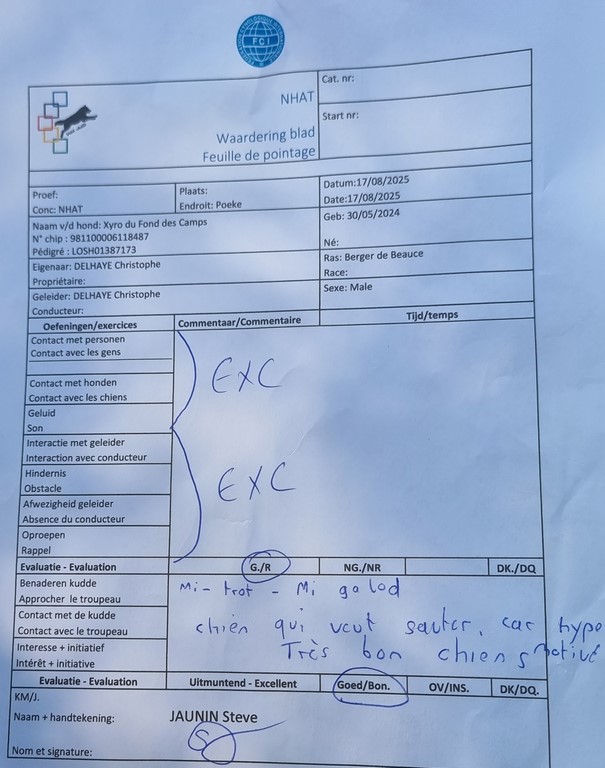 FCI
NHAT
Waardering blad
Feuille de pointage
Cat. nr:
Start nr:
Proef:
Conc: NHAT
Plaats:
Endroit: Poeke
Datum:17/08/2025
Date:17/08/2025
Naam v/d hond: Xyro du Fond des Camps
N° chip : 981100006118487
Pédigré : LOSH01387173
Geb: 30/05/2024
Né:
Eigenaar: DELHAYE Christophe
Propriétaire:
Ras: Berger de Beauce
Race:
Geleider: DELHAYE Christophe
Conducteur:
Sexe: Male
Oefeningen/exercices
Commentaar/Commentaire
Tijd/temps
Contact met personen
Contact avec les gens
EXC
Contact met honden
Contact avec les chiens
Geluid
Son
Interactie met geleider
Interaction avec conducteur
Hindernis
Obstacle
EXC
Afwezigheid geleider
Absence du conducteur
Oproepen
Rappel
Evaluatie - Evaluation
G./R
NG./NR
DK./DQ
Benaderen kudde
Approcher le troupeau
Mi- trot - Mi galod
Contact met de kudde
Contact avec le troupeau
chien qui veut sauter, car hype
Interesse + initiatief
Intérêt + initiative
Très bon chien motivé
Evaluatie - Evaluation
Uitmuntend - Excellent
Goed/Bon.
OV/INS.
DK/DQ.
KM/J.
Naam + handtekening:
JAUNIN Steve
Nom et signature: